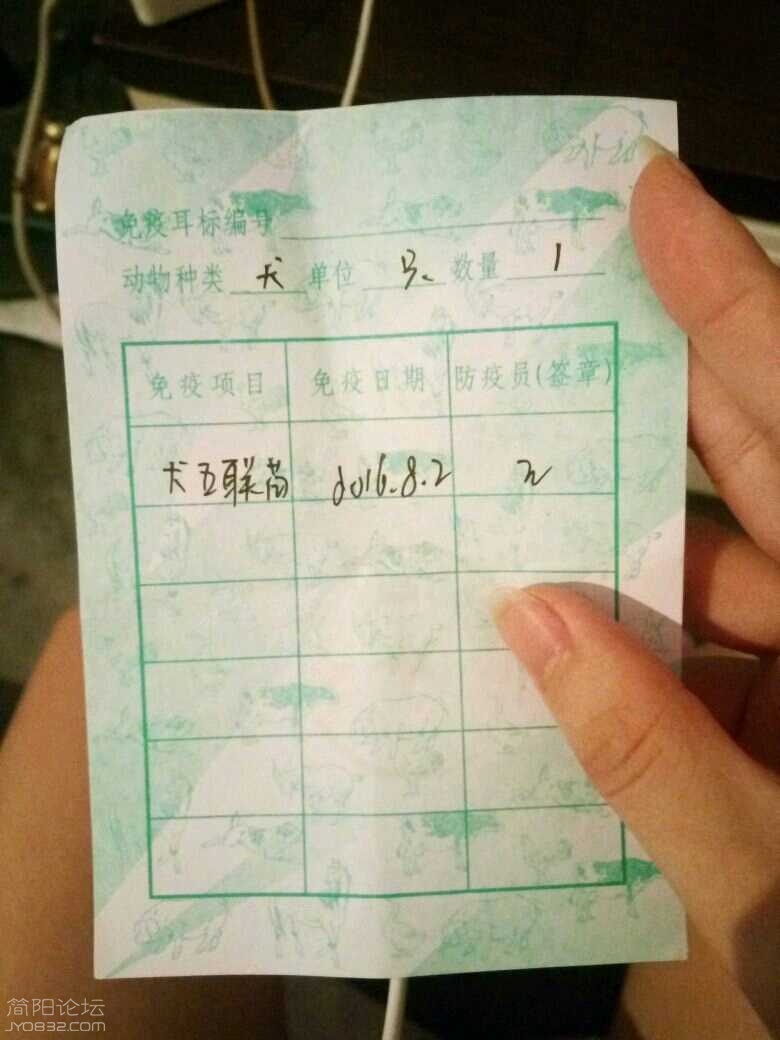 免疫耳标编号
动物种类 犬 单位 只 数量 1
免疫项目 免疫日期 防疫员(签章)
犬五联苗 2016.8.2
简阳论坛
JY0832.com